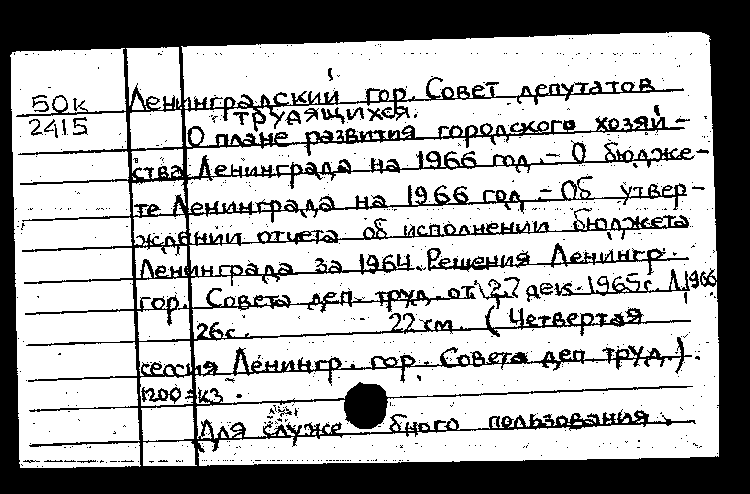 50к
2415
Ленинградский гор. Совет депутатов
трудящихся.
О плане развития городского хозяй-
ства Ленинграда на 1966 год. - О бюдже-
те Ленинграда на 1966 год. - Об утвер-
ждении отчета об исполнении бюджета
Ленинграда за 1964. Решения Ленингр.
гор. Совета деп. труд. от 27 дек. 1965г. Л, 1966
26с. 22 см. (Четвертая
сессия Ленингр. гор. Совета деп. труд.).
1200 экз.
(Для служебного пользования.